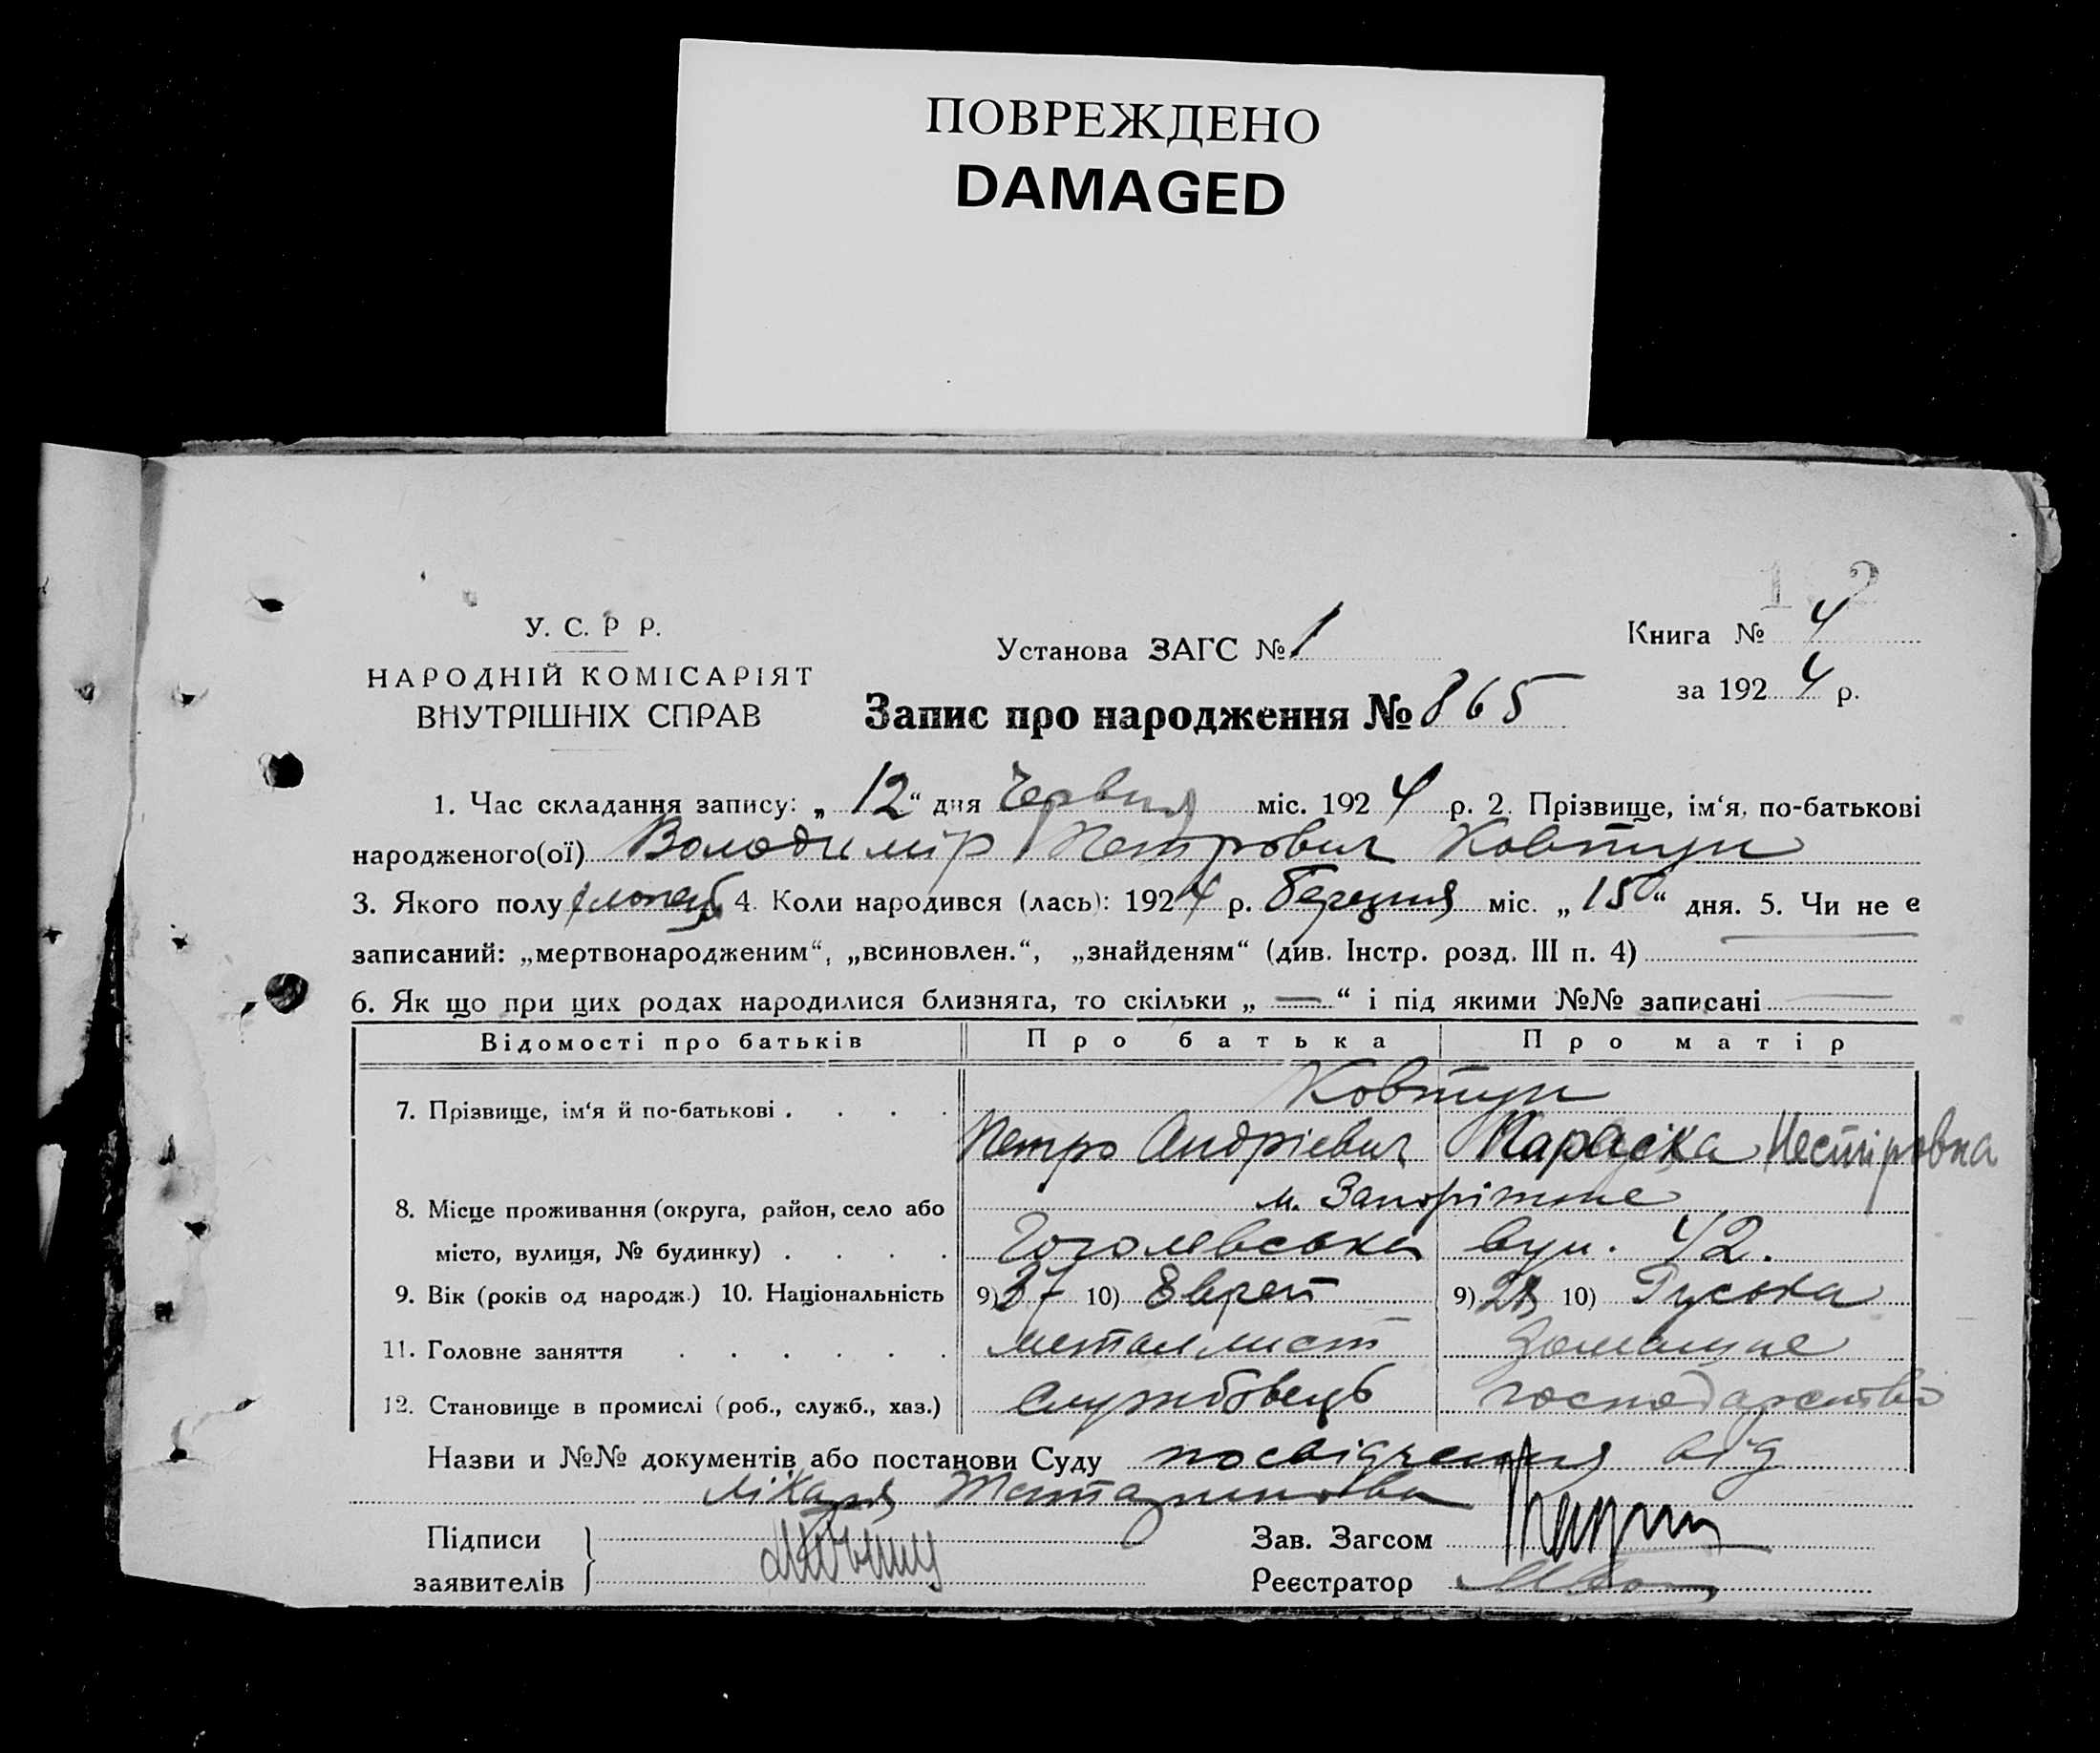 ПОВРЕЖДЕНО
DAMAGED
192
У. С. Р Р.
НАРОДНІЙ КОМІСАРІЯТ
ВНУТРІШНІХ СПРАВ
Установа ЗАГС № 1
Книга № 4
за 1924 р.
Запис про народження № 865
1. Час складання запису: „ 12 “ дня Червня міс. 1924 р. 2. Прізвище, ім‘я, по-батькові
народженого(ої) Володимір Петрович Ковтун
3. Якого полу хлопець 4. Коли народився (лась): 1924 р. березня міс. „ 15 “ дня. 5. Чи не є
записаний: „мертвонародженим“, „всиновлен.“, „знайденям“ (див. Інстр. розд. III п. 4)
6. Як що при цих родах народилися близнята, то скільки „ — “ і під якими №№ записані —
Відомості про батьків Про батька Про матір
7. Прізвище, ім‘я й по-батькові . . . . Ковтун
Петро Андрієвич Параска Нестіровна
8. Місце проживання (округа, район, село або м. Запоріжже
місто, вулиця, № будинку) . . . . Гоголевська вул. 42.
9. Вік (років од народж.) 10. Національність 9) 37 10) Еврей 9) 28 10) Руська
11. Головне заняття . . . . . . металлист домашне
12. Становище в промислі (роб., служб., хаз.) службовець господарство
Назви и №№ документів або постанови Суду посвідчення від
лікаря
Підписи
заявителів
Зав. Загсом
Реєстратор